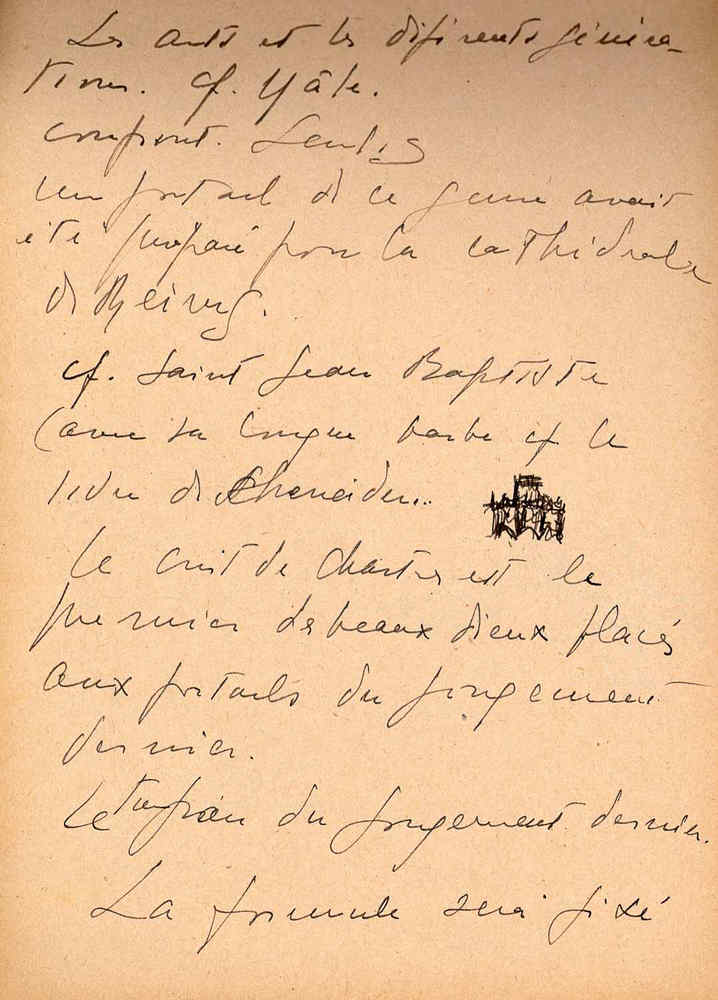 Les arts et les diférents généra-
tions. cf. Mâle.
confront. Senlis
un portail de ce genre avait
été préparé pour la cathédrale
de Reims.
cf. Saint Jean Baptiste
(avec sa longue barbe cf le
livre de
le crist de Chartres est le
premier des beaux dieux placés
aux portails du jougement
dernier.
Le tympan du jougement dernier.
La formule sera fixé